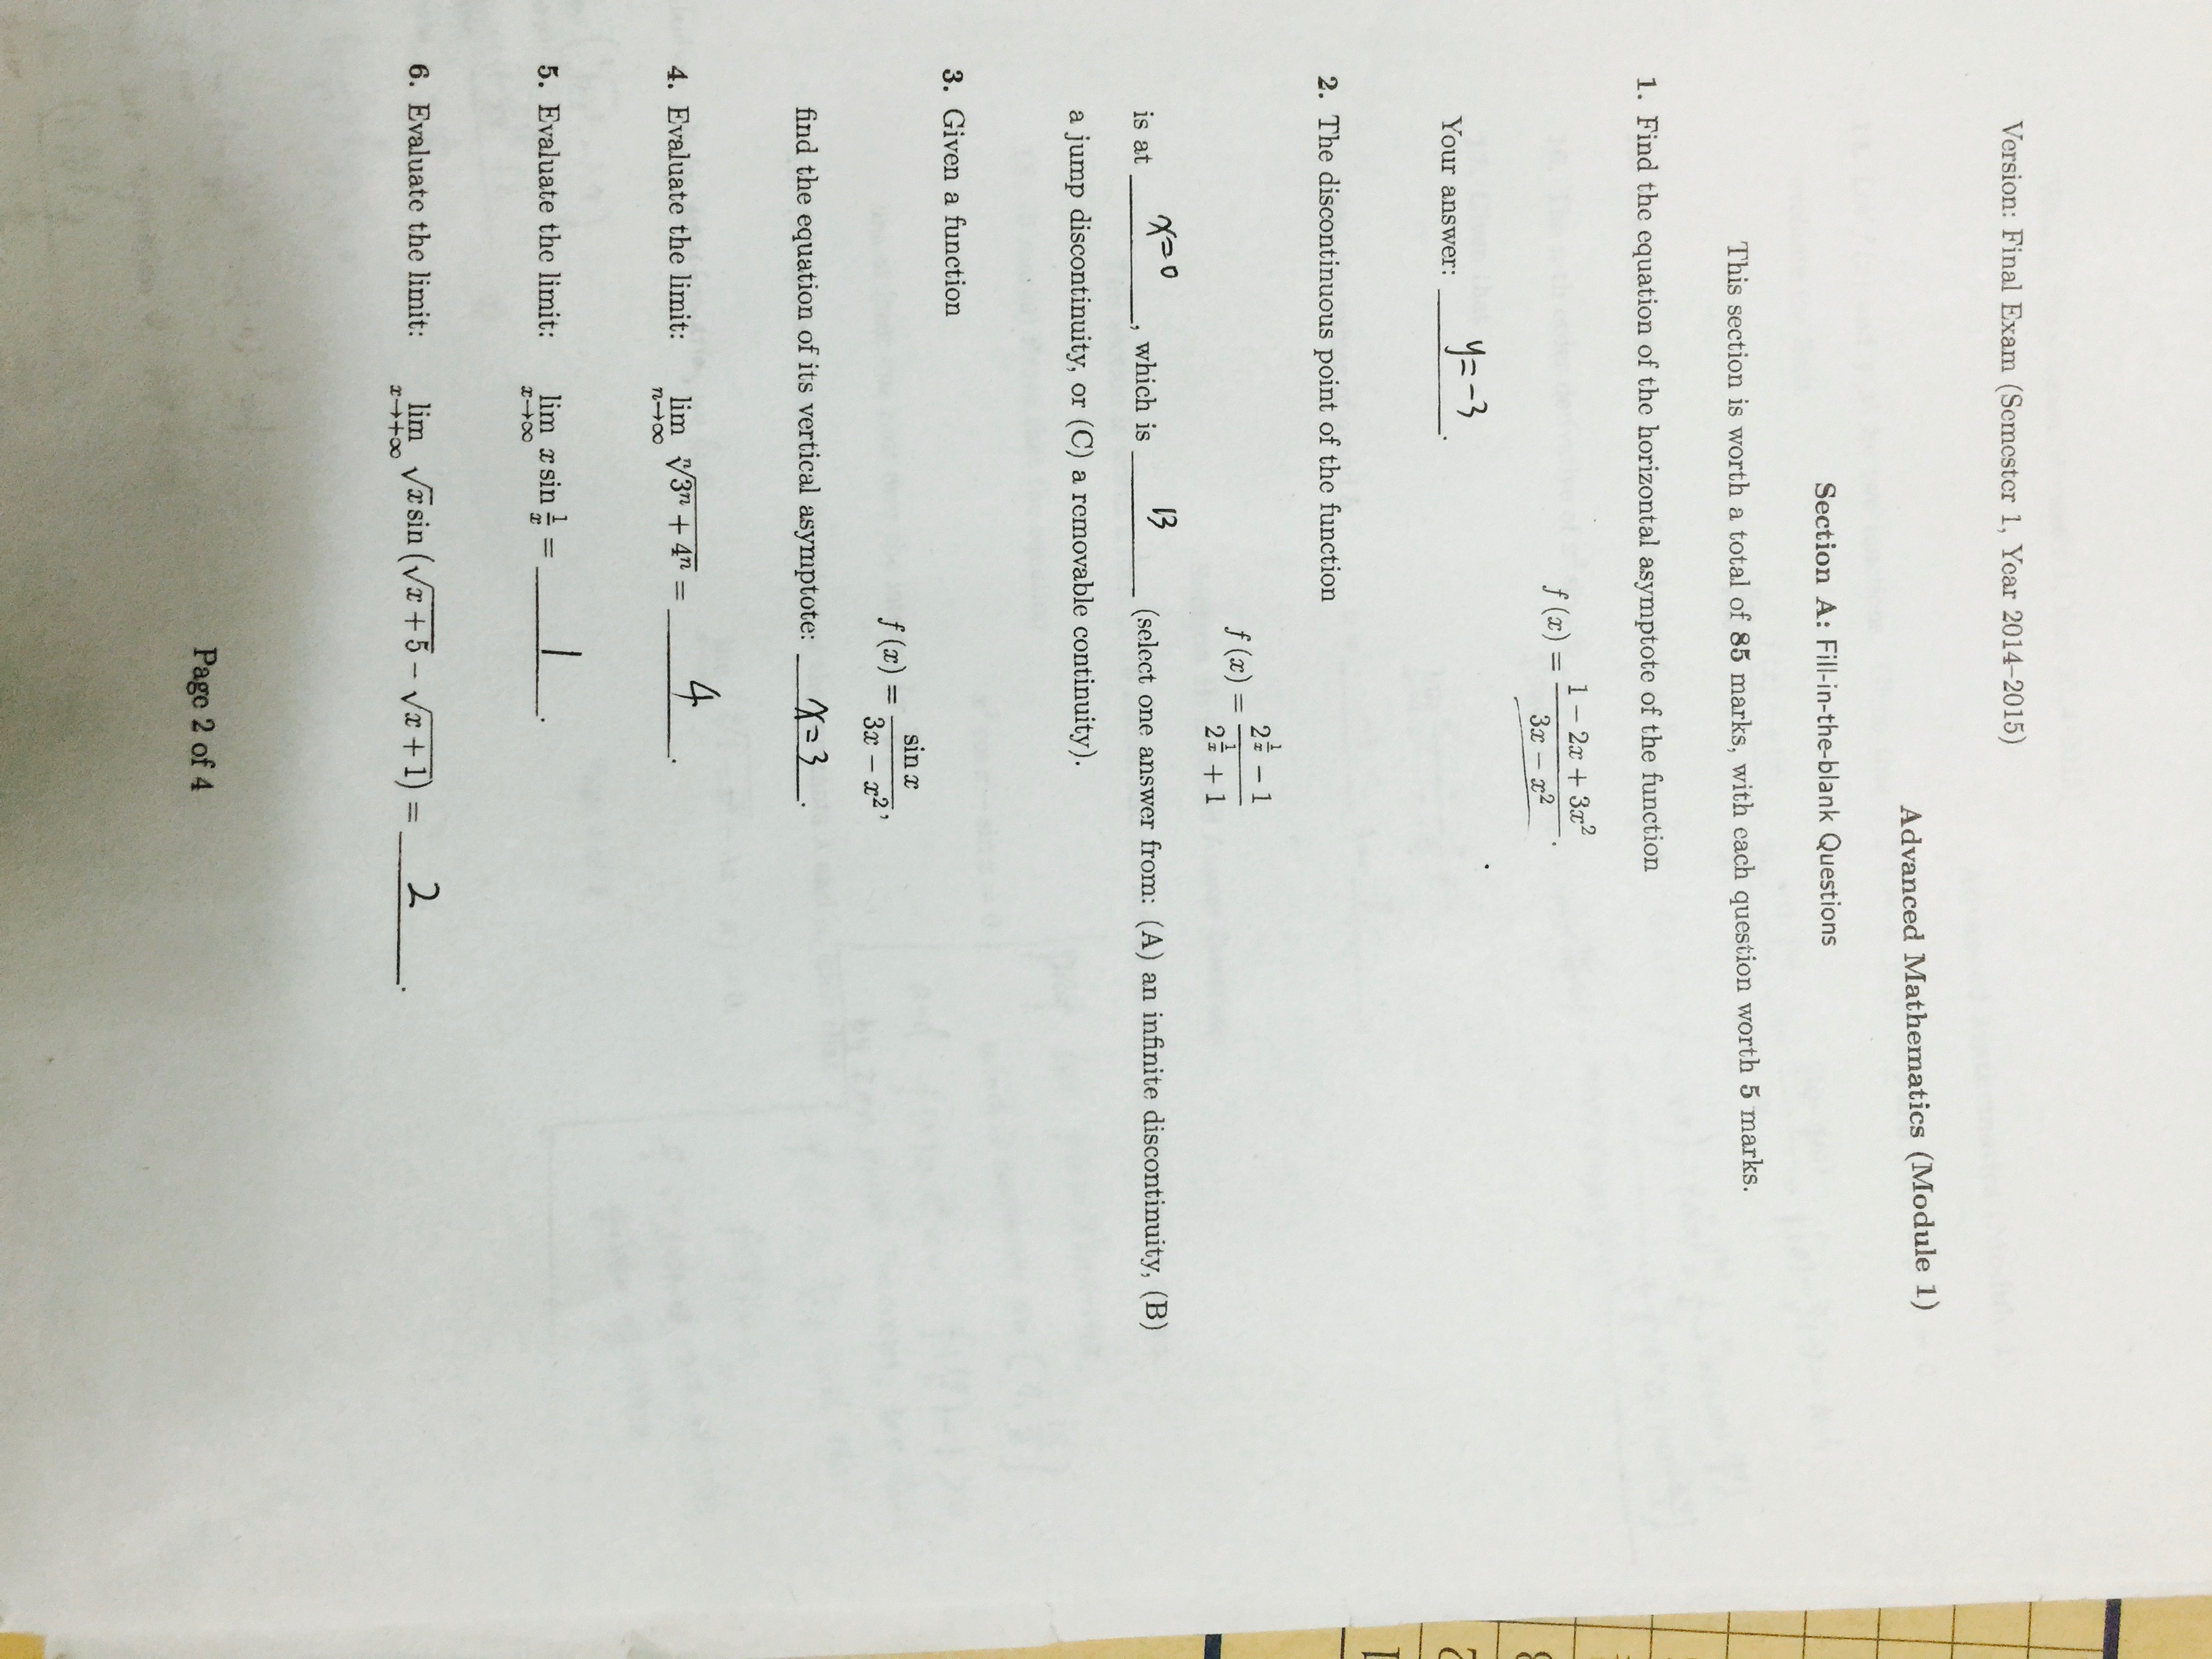 Version: Final Exam (Semester 1, Year 2014–2015)
Advanced Mathematics (Module 1)
Section A: Fill-in-the-blank Questions
This section is worth a total of 85 marks, with each question worth 5 marks.
1. Find the equation of the horizontal asymptote of the function
f (x) = \frac{1 − 2x + 3x^2}{3x − x^2}.
Your answer: y=-3.
2. The discontinuous point of the function
f (x) = \frac{2^{\frac{1}{x}} − 1}{2^{\frac{1}{x}} + 1}
is at x=0, which is B (select one answer from: (A) an infinite discontinuity, (B)
a jump discontinuity, or (C) a removable continuity).
3. Given a function
f (x) = \frac{sin x}{3x − x^2},
find the equation of its vertical asymptote: x=3.
4. Evaluate the limit: \lim_{n→∞} \sqrt[n]{3^n + 4^n} = 4.
5. Evaluate the limit: \lim_{x→∞} x sin \frac{1}{x} = 1.
6. Evaluate the limit: \lim_{x→+∞} \sqrt{x} sin (\sqrt{x + 5} − \sqrt{x + 1}) = 2.
Page 2 of 4
8
2
1